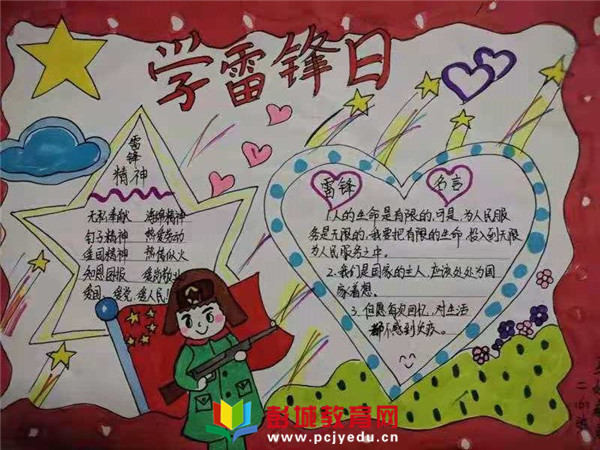 学雷锋日
雷锋
精神
无私奉献 海绵精神
钉子精神 热爱劳动
爱国精神 热情似火
知恩回报 爱岗敬业
爱国、爱党、爱人民!
雷锋 名言
1.人的生命是有限的,可是,为人民服
务是无限的,我要把有限的生命,投入到无限
为人民服务之中。
2.我们是国家的主人,应该处处为国
家着想。
3.但愿每次回忆,对生活
都不感到负疚。
彭城教育网
www.pcjyedu.cn